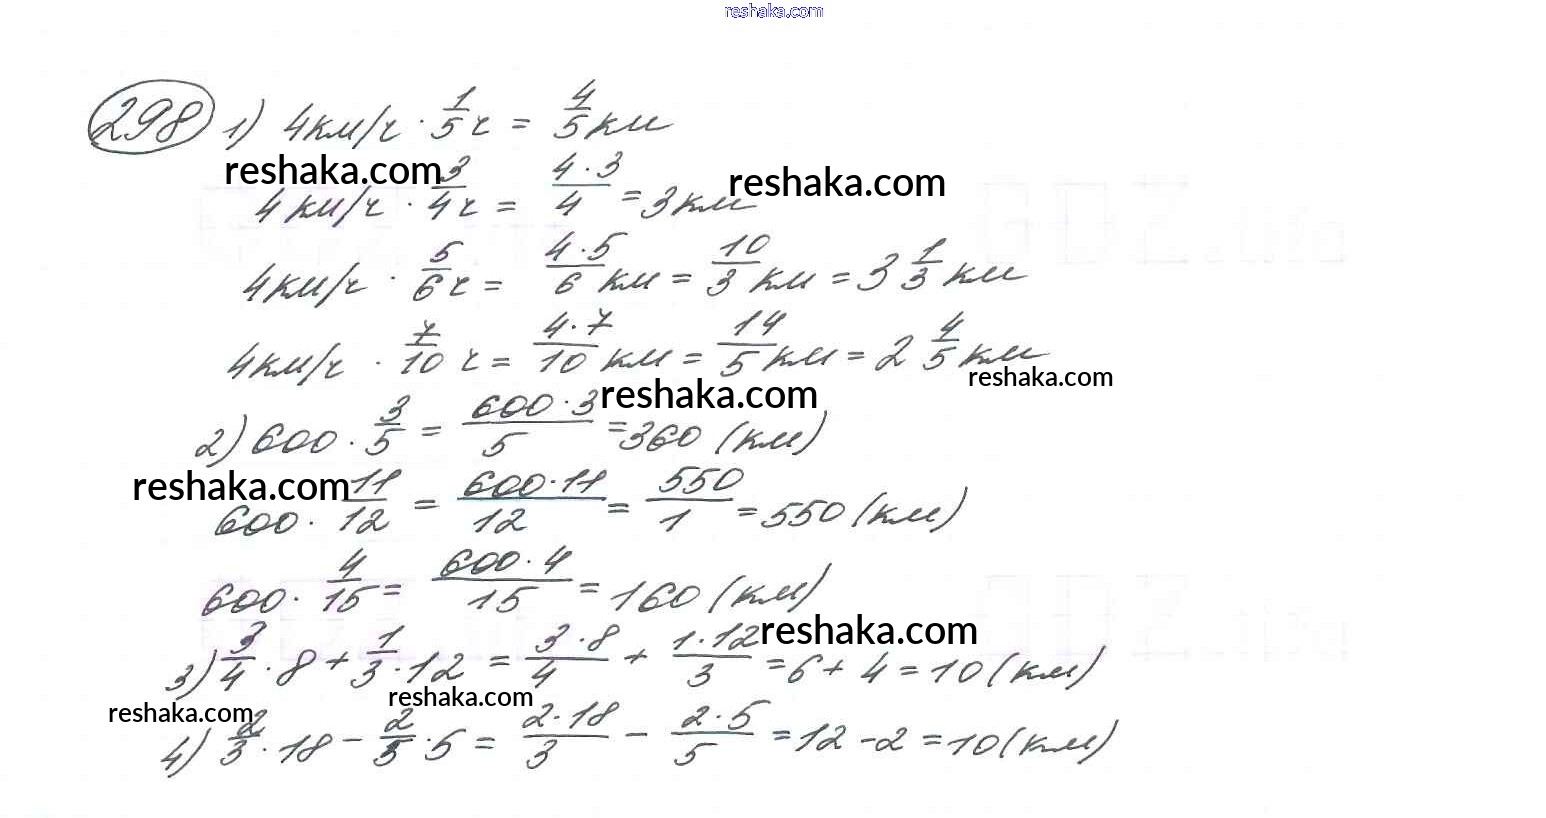 reshaka.com
298 1) 4км/ч · 1/5 ч = 4/5 км
reshaka.com reshaka.com
4км/ч · 3/4 ч = 4·3/4 = 3км
4км/ч · 5/6 ч = 4·5/6 км = 10/3 км = 3 1/3 км
4км/ч · 7/10 ч = 4·7/10 км = 14/5 км = 2 4/5 км
reshaka.com
reshaka.com
2) 600 · 3/5 = 600·3/5 = 360 (км)
reshaka.com
600 · 11/12 = 600·11/12 = 550/1 = 550 (км)
600 · 4/15 = 600·4/15 = 160 (км)
reshaka.com
3) 3/4 · 8 + 1/3 · 12 = 3·8/4 + 1·12/3 = 6 + 4 = 10 (км)
reshaka.com reshaka.com
4) 2/3 · 18 − 2/5 · 5 = 2·18/3 − 2·5/5 = 12 − 2 = 10 (км)